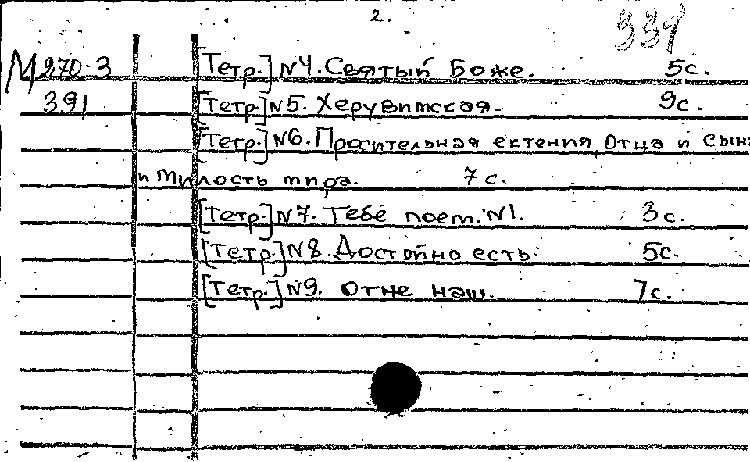 2.
331
М 270-3 [Тетр.] №4. Святый Боже. 5с.
391 [Тетр.] №5. Херувимская. 9с.
[Тетр.] №6. Просительная ектения, Отца и Сына
и милость мира. 7с.
[Тетр.] №7. Тебе поем. №1. 3с.
[Тетр.] №8. Достойно есть. 5с.
[Тетр.] №9. Отче наш. 7с.